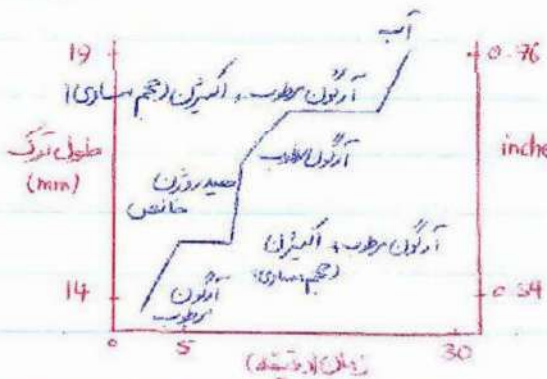 آب
19
0.76
آرگون مرطوب + اکسیژن (حجم مساوی)
طول ترک
(mm)
inches
آرگون مرطوب
هیدروژن
خالص
آرگون مرطوب + اکسیژن
(حجم مساوی)
14
0.54
آرگون
مرطوب
0
5
30
زمان (دقیقه)